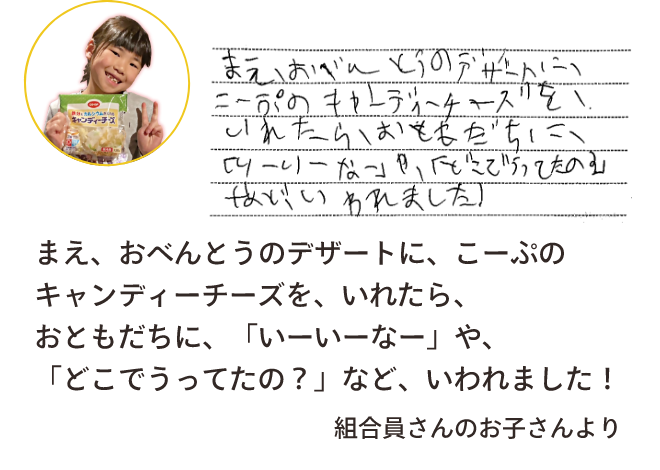 まえ、おべんとうのデザートに、
こーぷのキャンディーチーズを、
いれたら、おともだちに、
「いーいーなー」や、「どこでうってたの？」
など、いわれました！
キャンディーチーズ
まえ、おべんとうのデザートに、こーぷの
キャンディーチーズを、いれたら、
おともだちに、「いーいーなー」や、
「どこでうってたの？」など、いわれました！
組合員さんのお子さんより